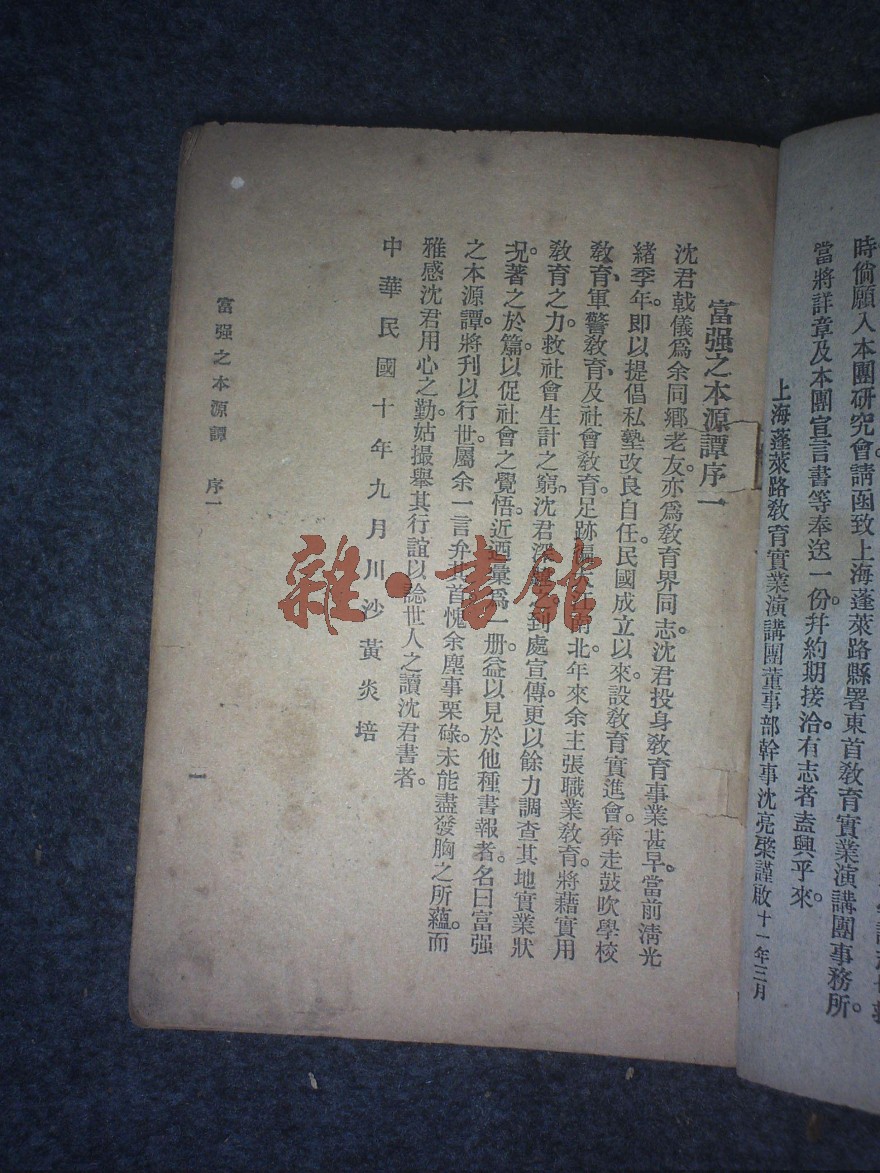 時倘願入本團研究會。請函致上海蓬萊路縣署東首教育實業演講團事務所。
當將詳章及本團宣言書等奉送一份。幷約期接洽。有志者盍興乎來。
上海蓬萊路教育實業演講團董事部幹事沈亮棨謹啟 十一年三月
富强之本源譚序一
沈君戟儀爲余同鄉老友。亦爲教育界同志。沈君投身教育事業甚早。當前淸光
緒季年。卽以提倡私塾改良自任。民國成立以來。設教育實進會。奔走鼓吹學校
教育、軍警教育、及社會教育。足跡徧大江南北。年來余主張職業教育。將藉實用
教育之力。救社會生計之窮。沈君深到處宣傳。更以餘力調查其地實業狀
況。著之於篇。以促社會之覺悟。近迺彙爲一册。益以見於他種書報者。名曰富强
之本源譚。將刊以行世。屬余一言弁其首。愧余塵事栗碌。未能盡發胸之所蘊。而
雅感沈君用心之勤。姑撮舉其行誼以諗世人之讀沈君書者。
中華民國十年九月川沙黃炎培
富强之本源譚 序一
一
雜·書館